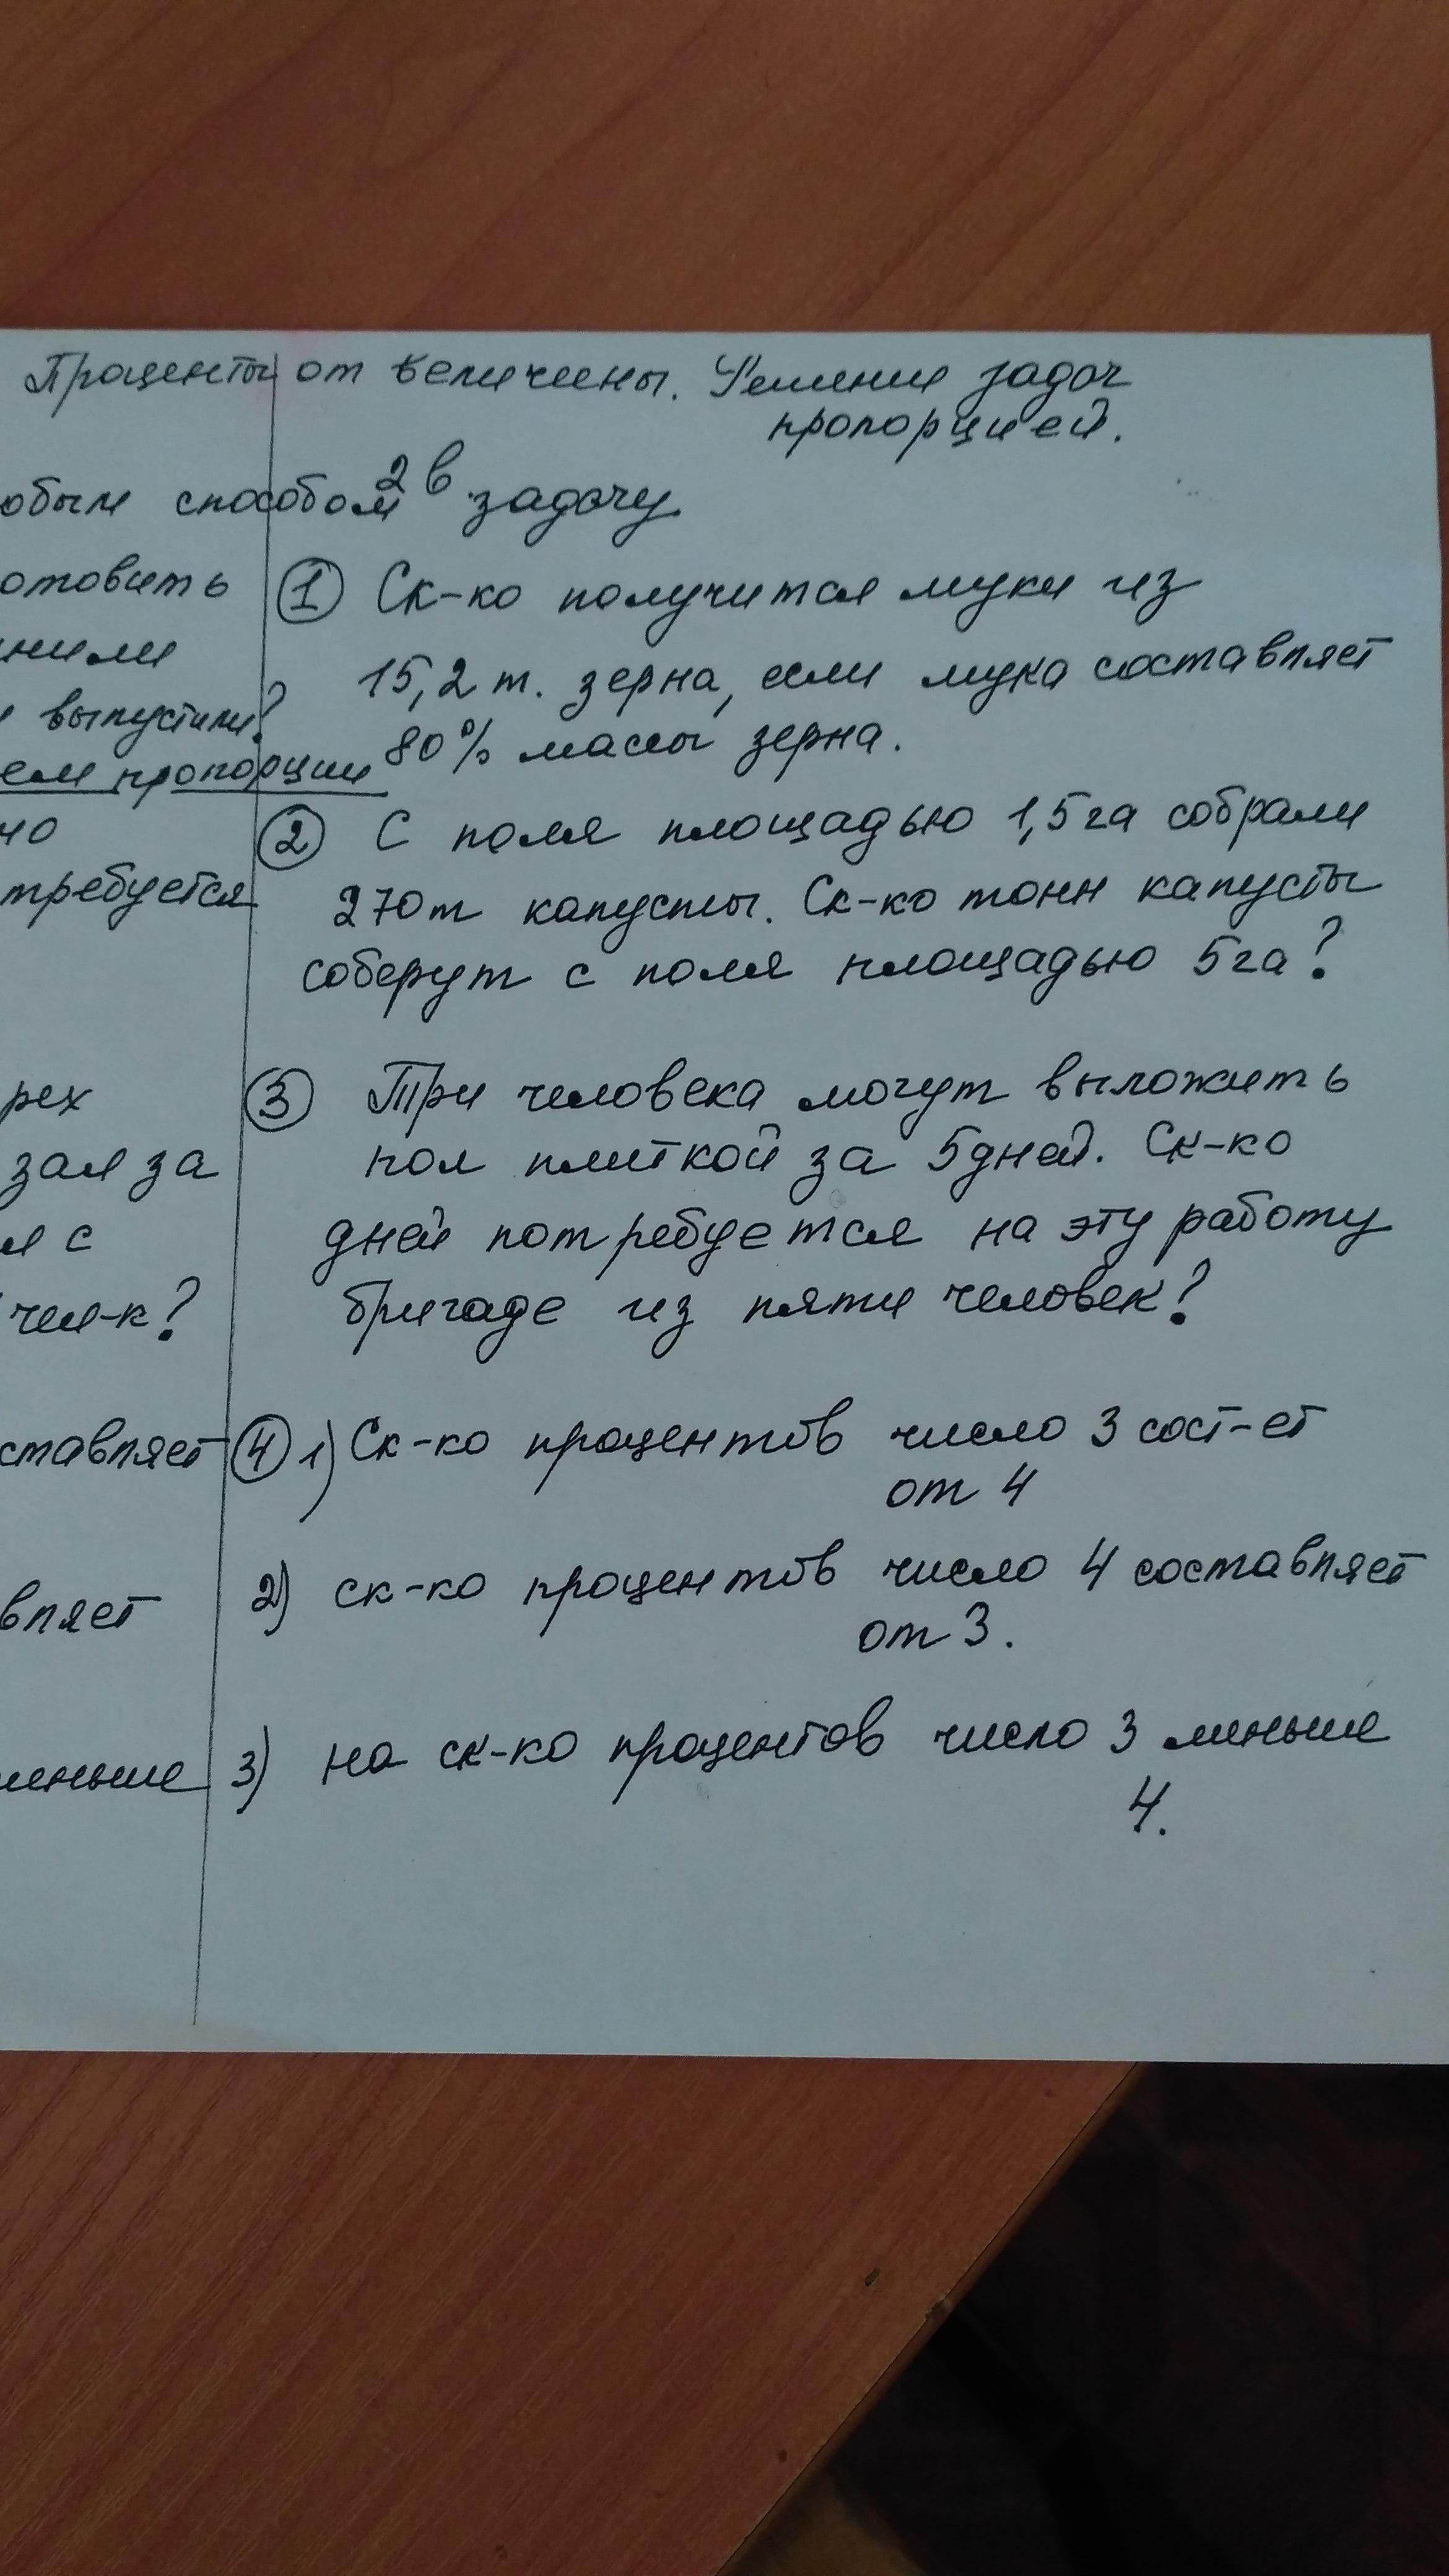 Проценты от величины. Решение задач
пропорцией.
юбым способом задачу
2 в.
отовить
ними
выпустили?
ем пропорции
но
требуется
рех
зал за
л с
чел-к?
ставляет
вляет
меньше
① Ск-ко получится муки из
15,2 т. зерна, если мука составляет
80% массы зерна.
② С поля площадью 1,5га собрали
270т капусты. Ск-ко тонн капусты
соберут с поля площадью 5га?
③ Три человека могут выложить
пол плиткой за 5дней. Ск-ко
дней потребуется на эту работу
бригаде из пяти человек?
④ 1) Ск-ко процентов число 3 сост-ет
от 4
2) ск-ко процентов число 4 составляет
от 3.
3) на ск-ко процентов число 3 меньше
4.